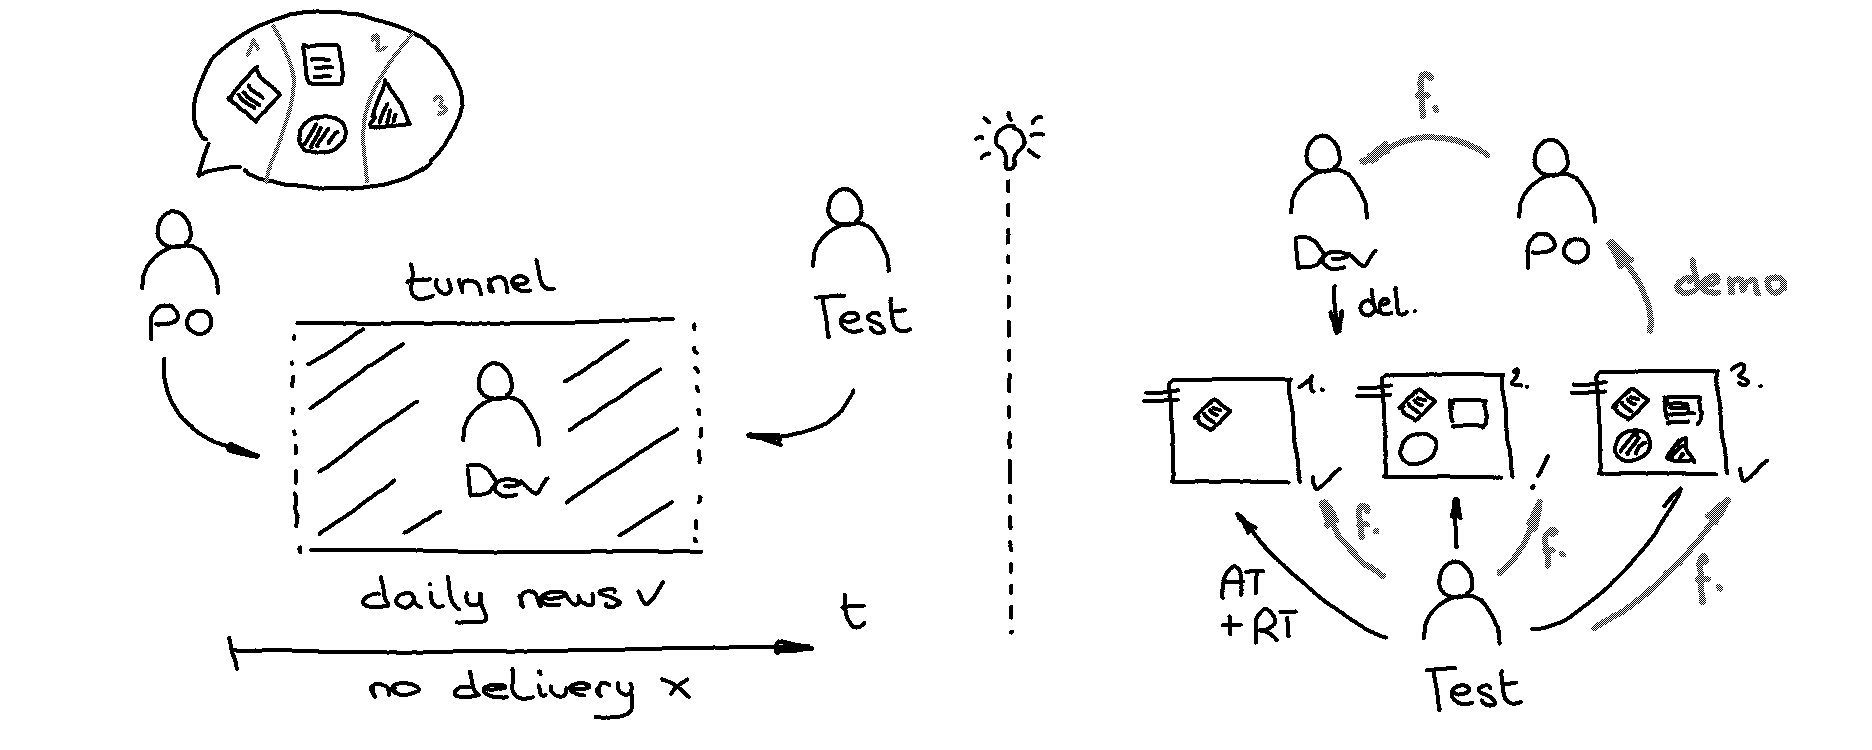 1
2
3
PO
tunnel
Dev
Test
daily news ✓
t
no delivery x
f.
Dev
PO
del.
demo
1.
2.
3.
✓
!
✓
f.
f.
f.
AT
+ RT
Test